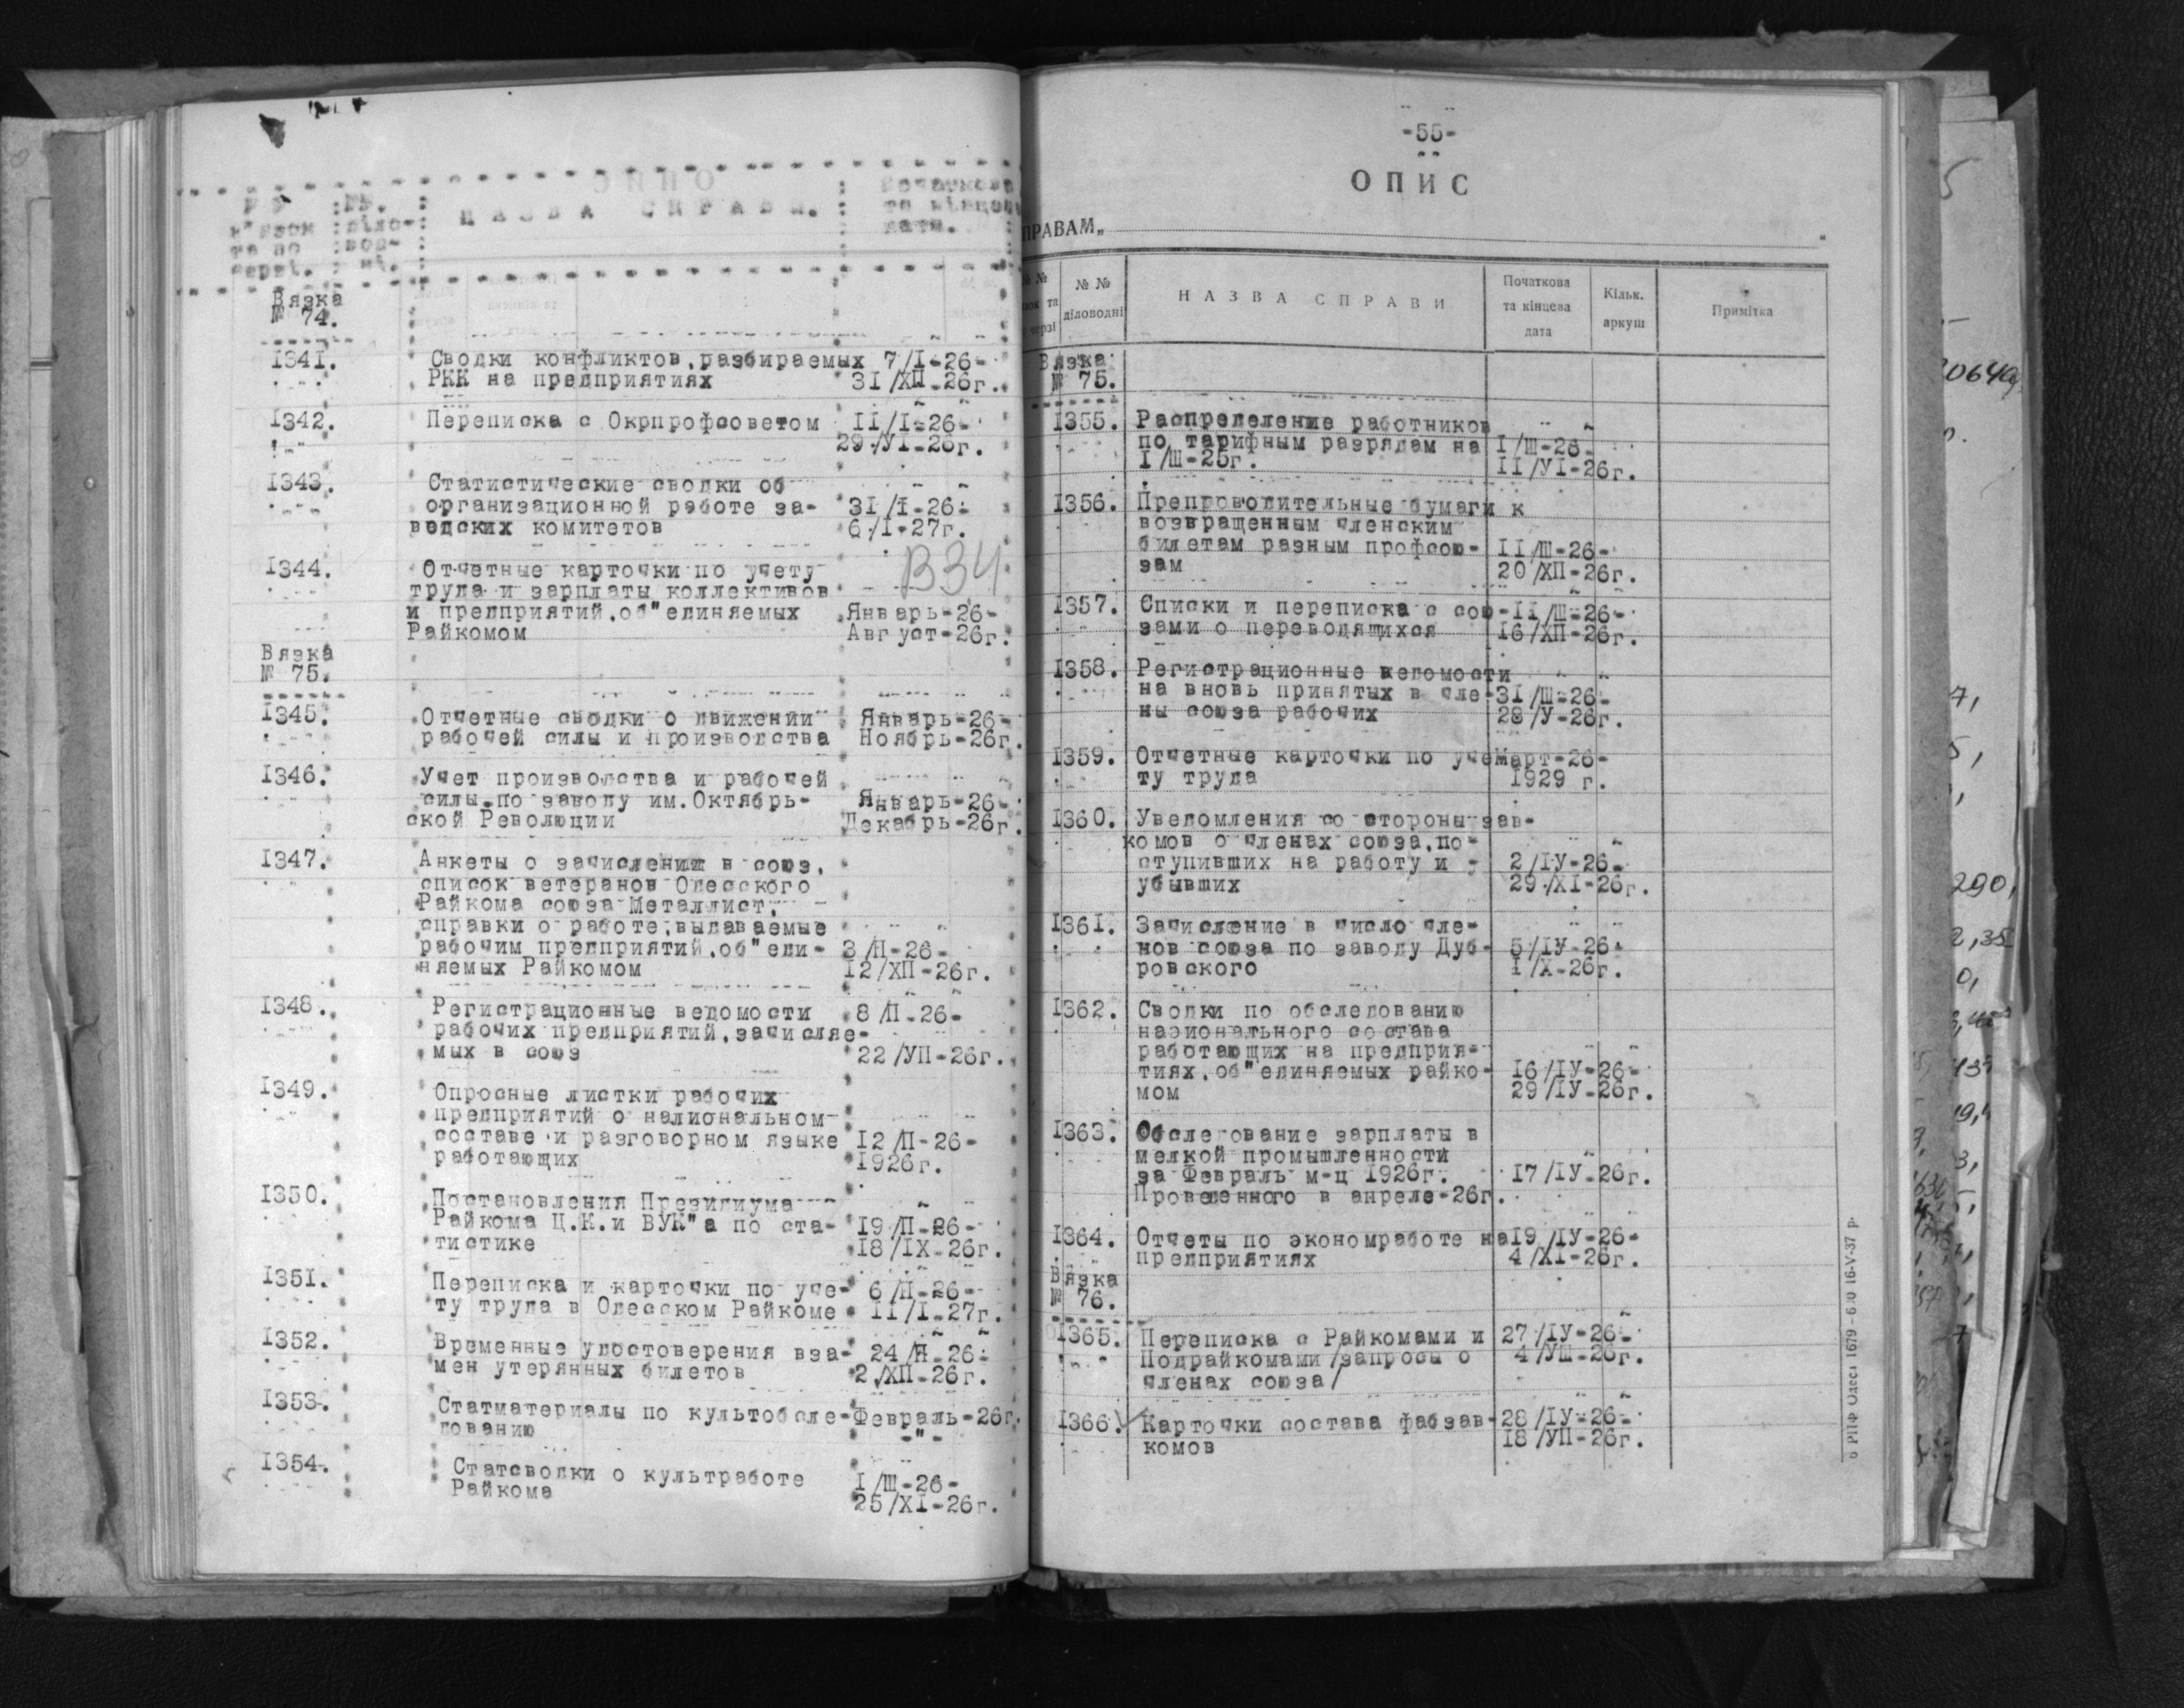 №№
в'язок
та по
черзі.
№№.
діло-
вод-
ні.
НАЗВА СПРАВИ.
Початкова
та кінцева
дата.
Вязка
№ 74.
1341. Сводки конфликтов,разбираемых 7/I-26-
РКК на предприятиях 31/ХП-26г.
1342. Переписка с Окрпрофсоветом II/I-26-
29/УI-26г.
1343. Статистические сводки об
организационной работе за- 31/I-26-
водских комитетов 6/I-27г.
В34
1344. Отчетные карточки по учету
труда и зарплаты коллективов
и предприятий,об"единяемых Январь-26-
Райкомом Август-26г.
Вязка
№ 75.
1345. Отчетные сводки о движении Январь-26-
рабочей силы и производства Ноябрь-26г.
1346. Учет производства и рабочей
силы по заводу им.Октябрь- Январь-26-
ской Революции Декабрь-26г.
1347. Анкеты о зачислении в союз,
список ветеранов Одесского
Райкома союза Металлист,
справки о работе,выдаваемые
рабочим предприятий,об"еди- 3/П-26-
няемых Райкомом 12/ХП-26г.
1348. Регистрационные ведомости 8/П-26-
рабочих предприятий,зачисляе-
мых в союз 22/УП-26г.
1349. Опросные листки рабочих
предприятий о национальном
составе и разговорном языке 12/П-26-
работающих 1926г.
1350. Постановления Президиума
Райкома Ц.К.и ВУК"а по ста- 19/П-26-
тистике 18/IХ-26г.
1351. Переписка и карточки по уче- 6/П-26-
ту труда в Одесском Райкоме 11/I-27г.
1352. Временные удостоверения вза- 24/П-26-
мен утерянных билетов 2/ХП-26г.
1353. Статматериалы по культобсле- Февраль-26г.
дованию -"-
1354. Статсводки о культработе I/Ш-26-
Райкома 25/ХI-26г.
-55-
ОПИС
ПРАВАМ„
№ №
зок та
черзі
№ №
діловодні
НАЗВА СПРАВИ
Початкова
та кінцева
дата
Кільк.
аркуш
Примітка
Вязка
№ 75.
1355. Распределение работников
по тарифным разрядам на I/Ш-26-
I/Ш-25г. II/УI-26г.
1356. Препроводительные бумаги к
возвращенным членским
билетам разным профсою- II/Ш-26-
зам 20/ХП-26г.
1357. Списки и переписка с сою- II/Ш-26-
зами о переводящихся 16/ХП-26г.
1358. Регистрационные ведомости
на вновь принятых в чле- 31/Ш-26-
ны союза рабочих 28/У-26г.
1359. Отчетные карточки по уче Март-26-
ту труда 1929 г.
1360. Уведомления со стороны зав-
комов о членах союза,по-
ступивших на работу и 2/IУ-26-
убывших 29/ХI-26г.
1361. Зачисление в число чле-
нов союза по заводу Дуб- 5/IУ-26-
ровского I/Х-26г.
1362. Сводки по обследованию
национального состава
работающих на предприя-
тиях,об"единяемых райко- 16/IУ-26-
мом 29/IУ-26г.
1363. Обследование зарплаты в
мелкой промышленности
за Февраль м-ц 1926г. 17/IУ-26г.
Проведенного в апреле-26г.
1364. Отчеты по экономработе на 19/IУ-26-
предприятиях 4/ХI-26г.
Вязка
№ 76.
1365. Переписка с Райкомами и 27/IУ-26-
Подрайкомами/запросы о 4/УШ-26г.
членах союза/
1366. Карточки состава фабзав- 28/IУ-26-
комов 18/УП-26г.
РПФ Одеса 1679 - 630 16-V-37 р.